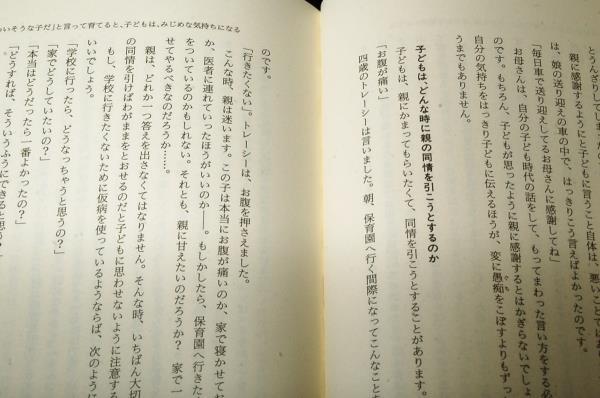 とうんざりしてしま
親に感謝するようにと子どもに言うこと自体は、悪いことではあり
は、娘の送り迎えの車の中で、はっきりこう言えばよかったのです。
「毎日車で送り迎えしてるお母さんに感謝してね」
お母さんは、自分の子ども時代の話をして、もってまわった言い方をする必
のです。もちろん、子どもが思ったように親に感謝するとはかぎらないでしょ
自分の気持ちをはっきり子どもに伝えるほうが、変に愚痴をこぼすよりもずっ
うまでもありません。
子どもは、どんな時に親の同情を引こうとするのか
子どもは、親にかまってもらいたくて、同情を引こうとすることがあります。
「お腹が痛い」
四歳のトレーシーは言いました。朝、保育園へ行く間際になってこんなことを
いそうな子だ」と言って育てると、子どもは、みじめな気持ちになる
のです。
「行きたくない」。トレーシーは、お腹を押さえました。
こんな時、親は迷います。この子は本当にお腹が痛いのか、家で寝かせてお
か、医者に連れていったほうがいいのか――。もしかしたら、保育園へ行きた
をついているのかもしれない。それとも、親に甘えたいのだろうか？　家で一
せてやるべきなのだろうか……。
親は、どれか一つ答えを出さなくてはなりません。そんな時、いちばん大切
の同情を引けばわがままをとおせるのだと子どもに思わせないように注意する
もし、学校に行きたくないために仮病を使っているようならば、次のように
いいでしょう。
「学校に行ったら、どうなっちゃうと思うの？」
「家でどうしていたいの？」
「本当はどうだったら一番よかったの？」
「どうすれば、そういうふうにできると思う？